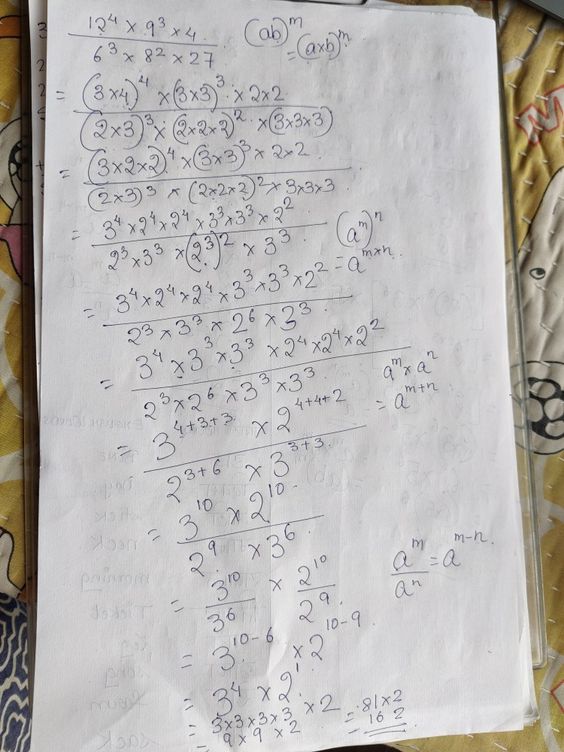 12⁴ × 9³ × 4 / 6³ × 8² × 27 (ab)ᵐ = (a×b)ᵐ
= (3×4)⁴ × (3×3)³ × 2×2 / (2×3)³ × (2×2×2)² × (3×3×3)
= (3×2×2)⁴ × (3×3)³ × 2×2 / (2×3)³ × (2×2×2)² × 3×3×3
= 3⁴ × 2⁴ × 2⁴ × 3³ × 3³ × 2² / 2³ × 3³ × (2³)² × 3³ (aᵐ)ⁿ = aᵐˣⁿ
= 3⁴ × 2⁴ × 2⁴ × 3³ × 3³ × 2² / 2³ × 3³ × 2⁶ × 3³
= 3⁴ × 3³ × 3³ × 2⁴ × 2⁴ × 2² / 2³ × 2⁶ × 3³ × 3³ aᵐ × aⁿ = aᵐ⁺ⁿ
= 3⁴⁺³⁺³ × 2⁴⁺⁴⁺² / 2³⁺⁶ × 3³⁺³
= 3¹⁰ × 2¹⁰ / 2⁹ × 3⁶
= 3¹⁰/3⁶ × 2¹⁰/2⁹ aᵐ/aⁿ = aᵐ⁻ⁿ
= 3¹⁰⁻⁶ × 2¹⁰⁻⁹
= 3⁴ × 2¹
= 3×3×3×3 × 2 = 81×2
= 9 × 9 × 2 162